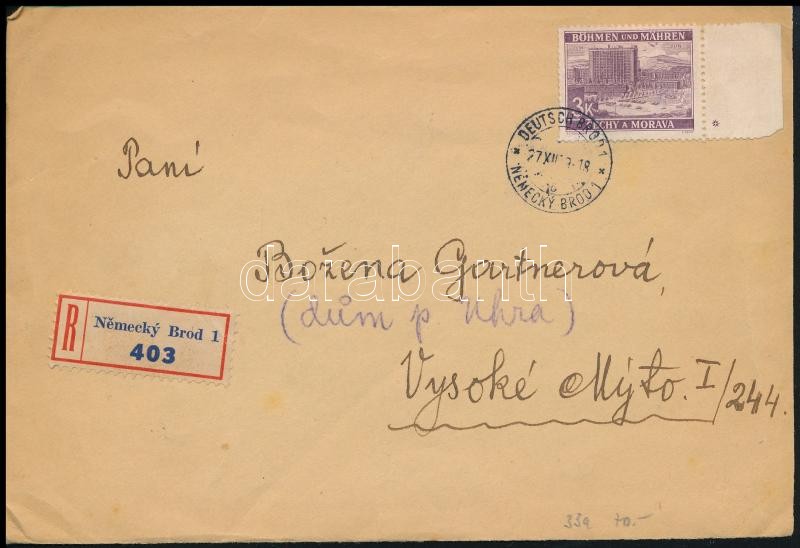 BÖHMEN UND MÄHREN
3K
ČECHY A MORAVA
DEUTSCH BROD 1
27.XII
-18
NĚMECKÝ BROD 1
Paní
Božena Gartnerová,
(dům p. Uhra)
Vysoké Mýto. I/244.
R
Německý Brod 1
403
darabanth
33a 70.-